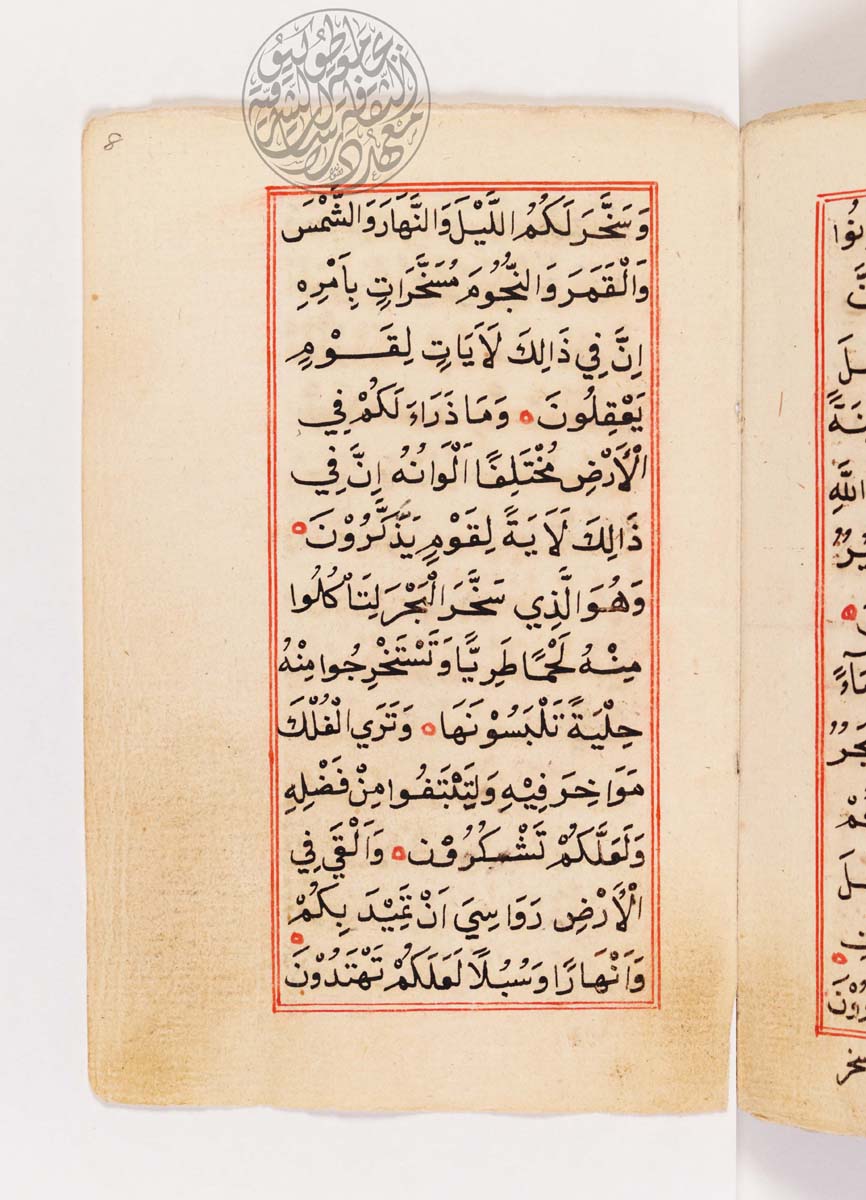 8
وَسَخَّرَ لَكُمُ اللَّيْلَ وَالنَّهَارَ وَالشَّمْسَ
وَالْقَمَرَ وَالنُّجُوُمَ مُسَخَّرَاتٍ بِاَمْرِهِ
اِنَّ فِي ذَالِكَ لَاَيَاتٍ لِقَوْمٍ
يَعْقِلُونَ ه وَمَا ذَرَاَءَ لَكُمْ فِي
الْأَرْضِ مُخْتَلِفًا اَلْوَانُهُ اِنَّ فِي
ذَالِكَ لَاَيَةً لِقَوْمٍ يَذَّكَّرُوْنَ ه
وَهُوَ الَّذِي سَخَّرَ الْبَحْرَ لِتَاْكُلُوا
مِنْهُ لَحْمًا طَرِيًّا وَتَسْتَخْرِجُوا مِنْهُ
حِلْيَةً تَلْبَسُوْنَهَا ه وَتَرَي الْفُلْكَ
مَوَاخِرَ فِيْهِ وَلِتَبْتَغُوا مِنْ فَضْلِهِ
وَلَعَلَّكُمْ تَشْكُرُوْن ه وَاَلْقَي فِي
الْأَرْضِ رَوَاسِيَ اَنْ تَمِيْدَ بِكُمْ
وَاَنْهَارًا وَسُبُلًا لَعَلَكُمْ تَهْتَدُوْنَ ه